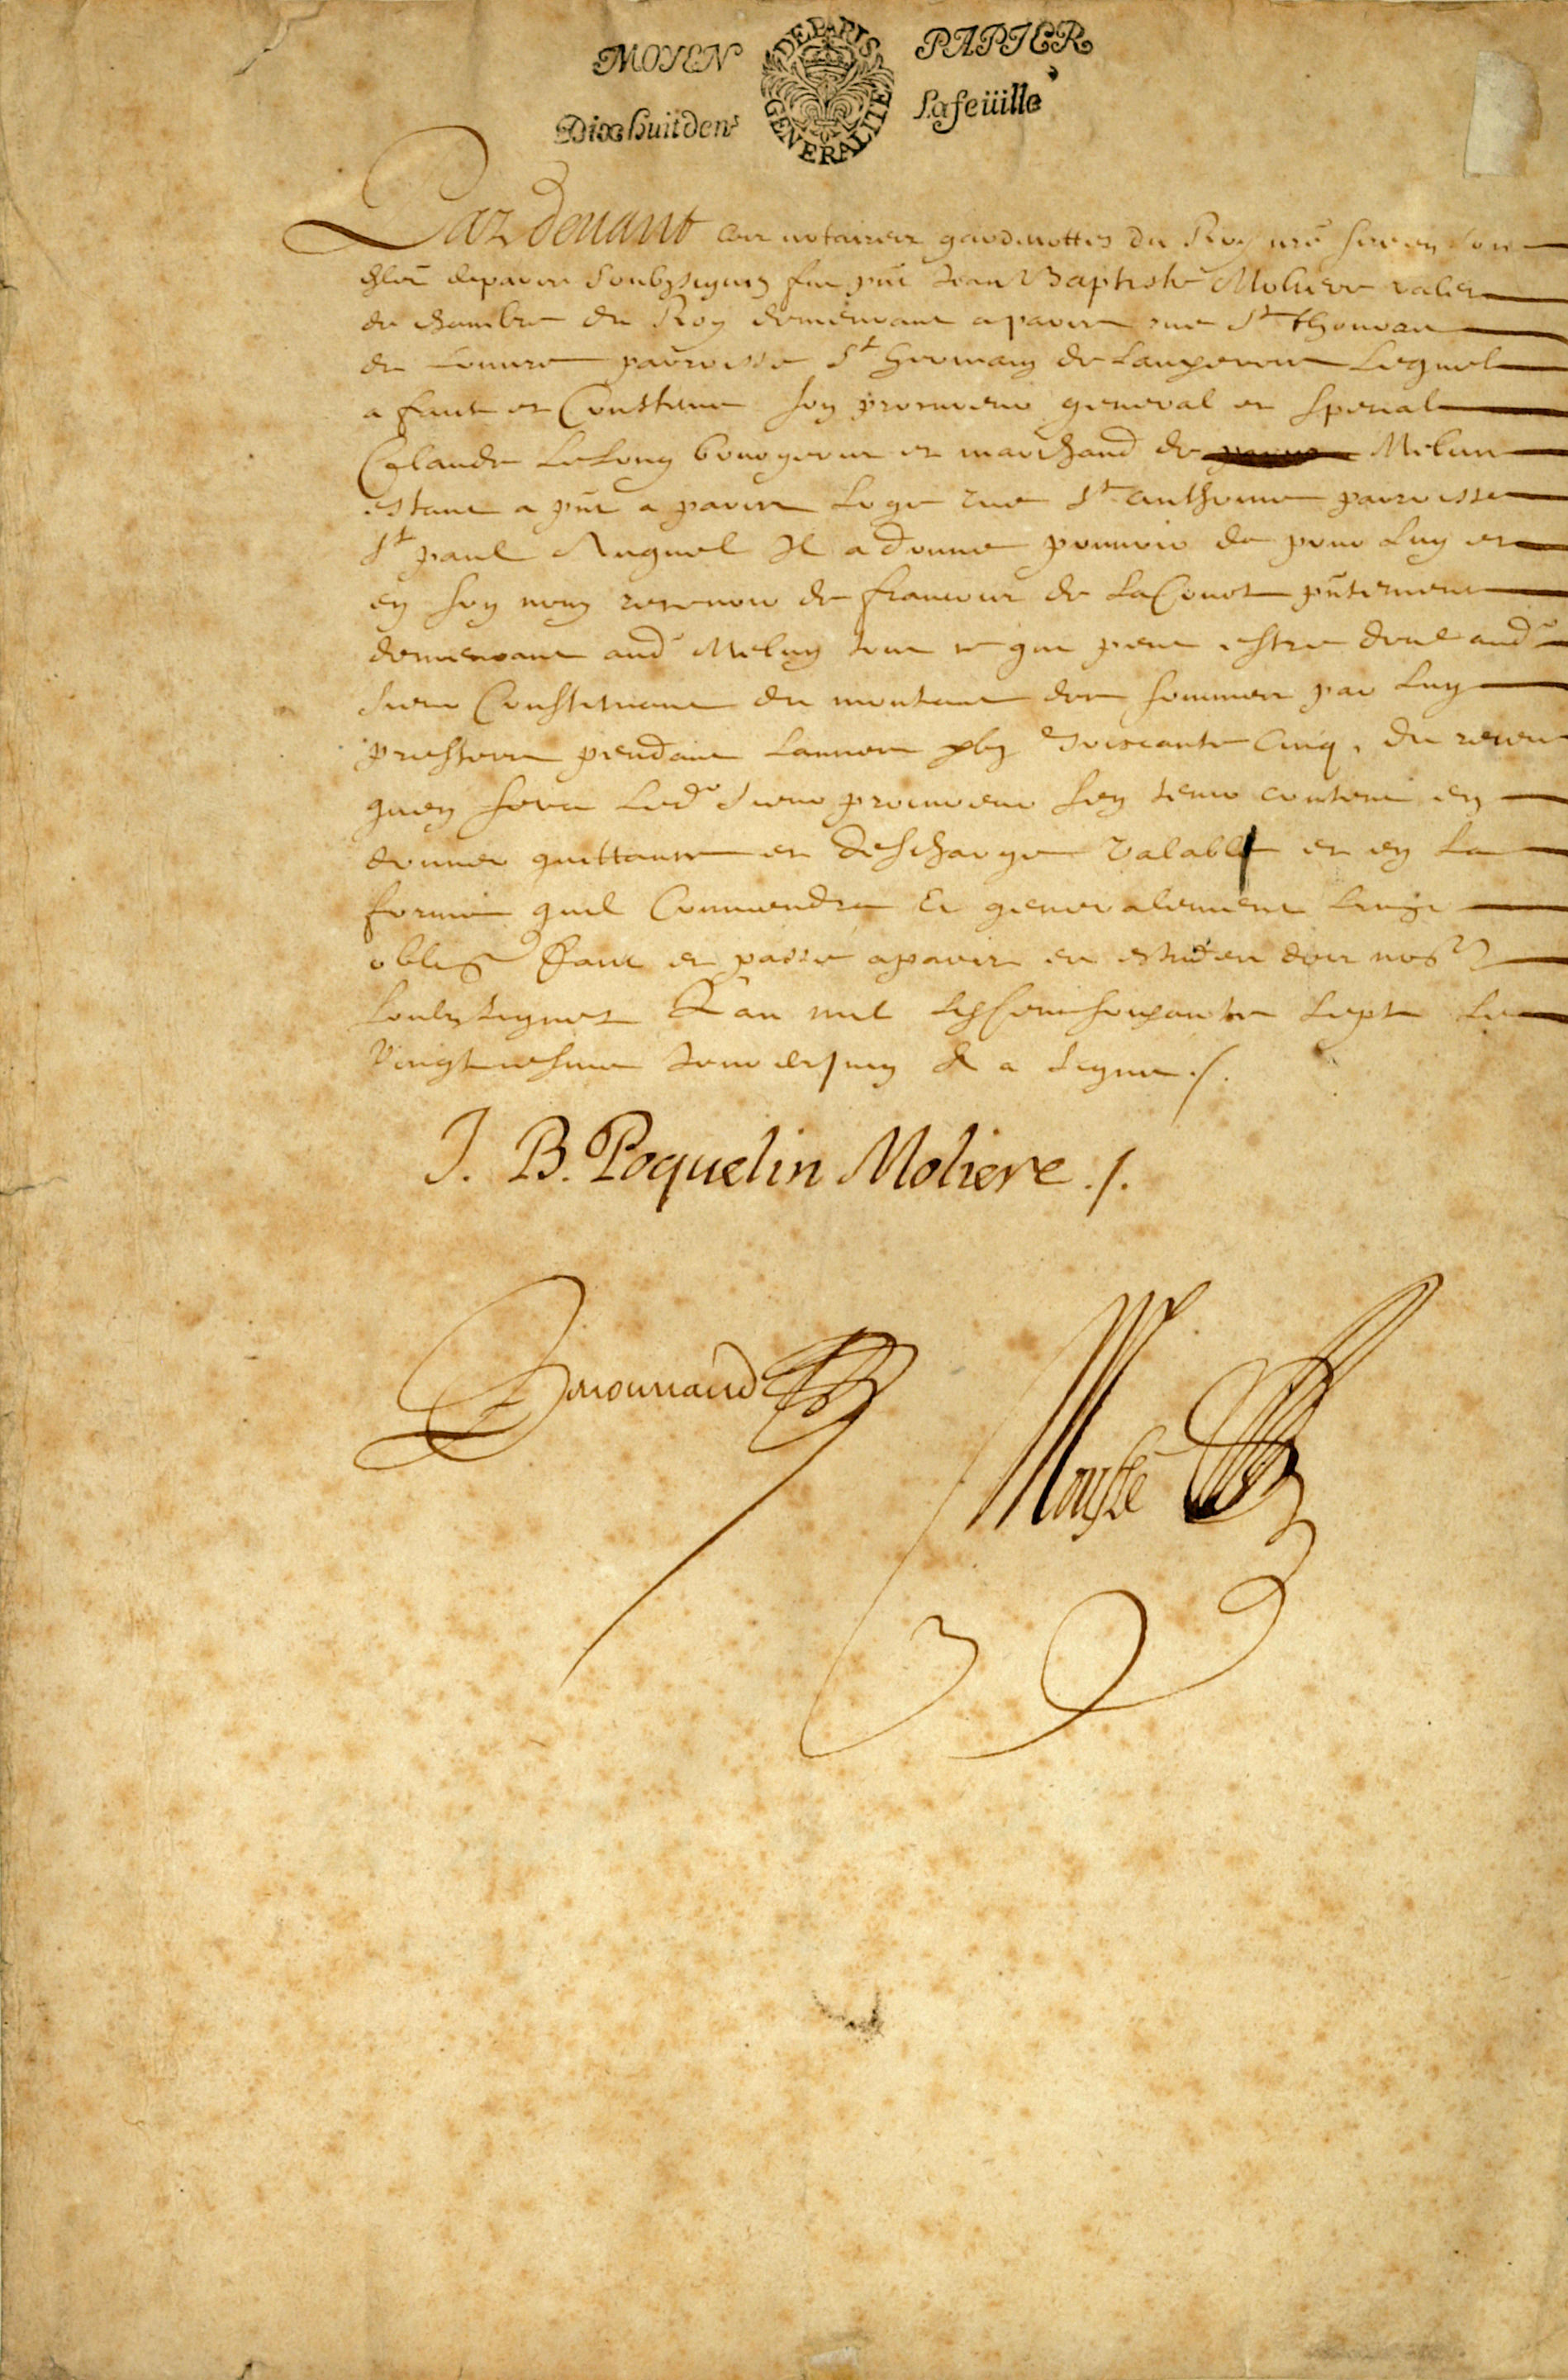 MOYEN PAPIER
DE PARIS GENERALITE
Dixhuit den^s La feüille
Par devant les notaires gardenottes du Roy n͞re sire en son
ch͞let de paris soubzsignez fut p͞nt Jean Baptiste Moliere valet
de chambre du Roy demeurant a paris rue S^t thomas
du Louvre parroisse S^t Germain de Lauxerrois Lequel
a fait et Constitué son procureur general et special
Claude LeLong bourgeois et marchand de Melun
estant a p͞nt a paris Logé rue S^t anthoine parroisse
S^t paul Auquel Il a donné pouvoir de pour Luy et
en son nom recevoir de françois de LaCourt p͞ntement
demeurant aud Melun tout ce qui peut estre deub aud
sieur Constituant du montant des sommes par Luy
prestées pendant Lannée soixante Cinq, du receu
quen sera Led sieur procureur soy tenir contant en
donner quittance et descharge valable et en La
forme quil Conviendra Et generalement &c
oblig Fait et passé a paris es estudes des no^res
soubzsignez Lan mil six Cens soixante sept Le
vingt jour de juin & a signé ./.
J. B. Poquelin Moliere ./.
Mousle